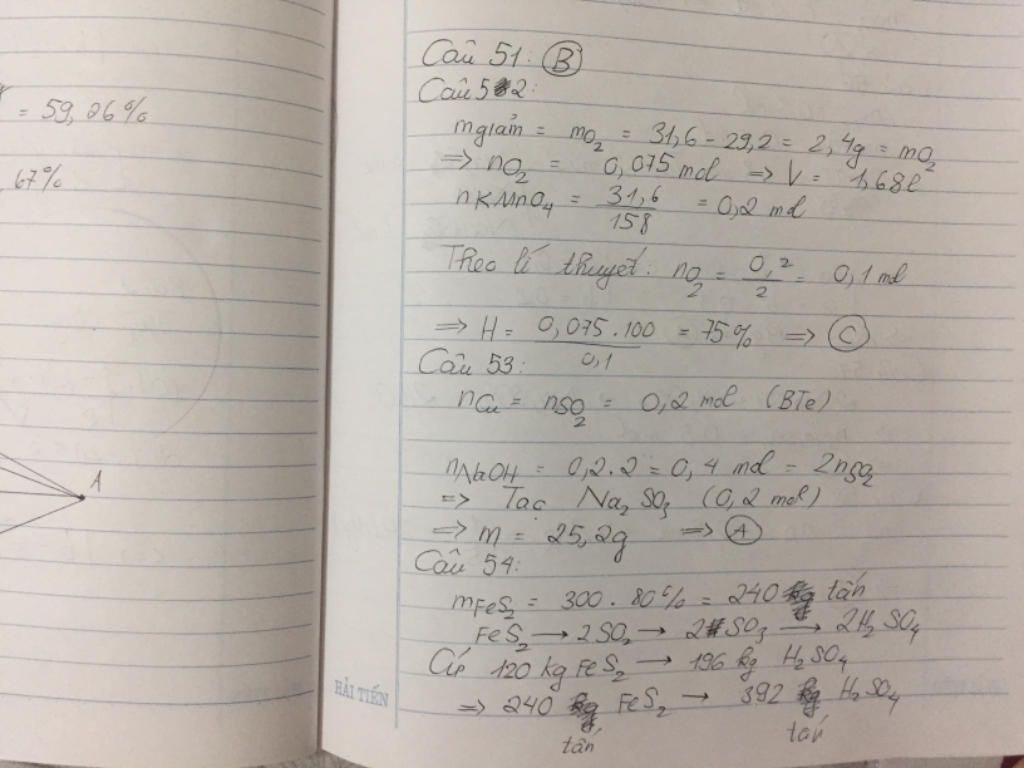 = 59,26%
67%
A
Câu 51: B
Câu 52:
mgiảm = mO2 = 31,6 - 29,2 = 2,4g = mO2
=> nO2 = 0,075 mol => V = 1,68l
nKMnO4 = 31,6/158 = 0,2 mol
Theo lí thuyết: nO2 = 0,2/2 = 0,1 mol
=> H = 0,075.100/0,1 = 75% => C
Câu 53:
nCu = nSO2 = 0,2 mol (BTe)
nNaOH = 0,2.2 = 0,4 mol = 2nSO2
=> Tạo Na2SO3 (0,2 mol)
=> m = 25,2g => A
Câu 54:
mFeS2 = 300.80% = 240 tấn
FeS2 → 2SO2 → 2SO3 → 2H2SO4
Cứ 120 kg FeS2 → 196 kg H2SO4
=> 240 tấn FeS2 → 392 tấn H2SO4
HẢI TIẾN